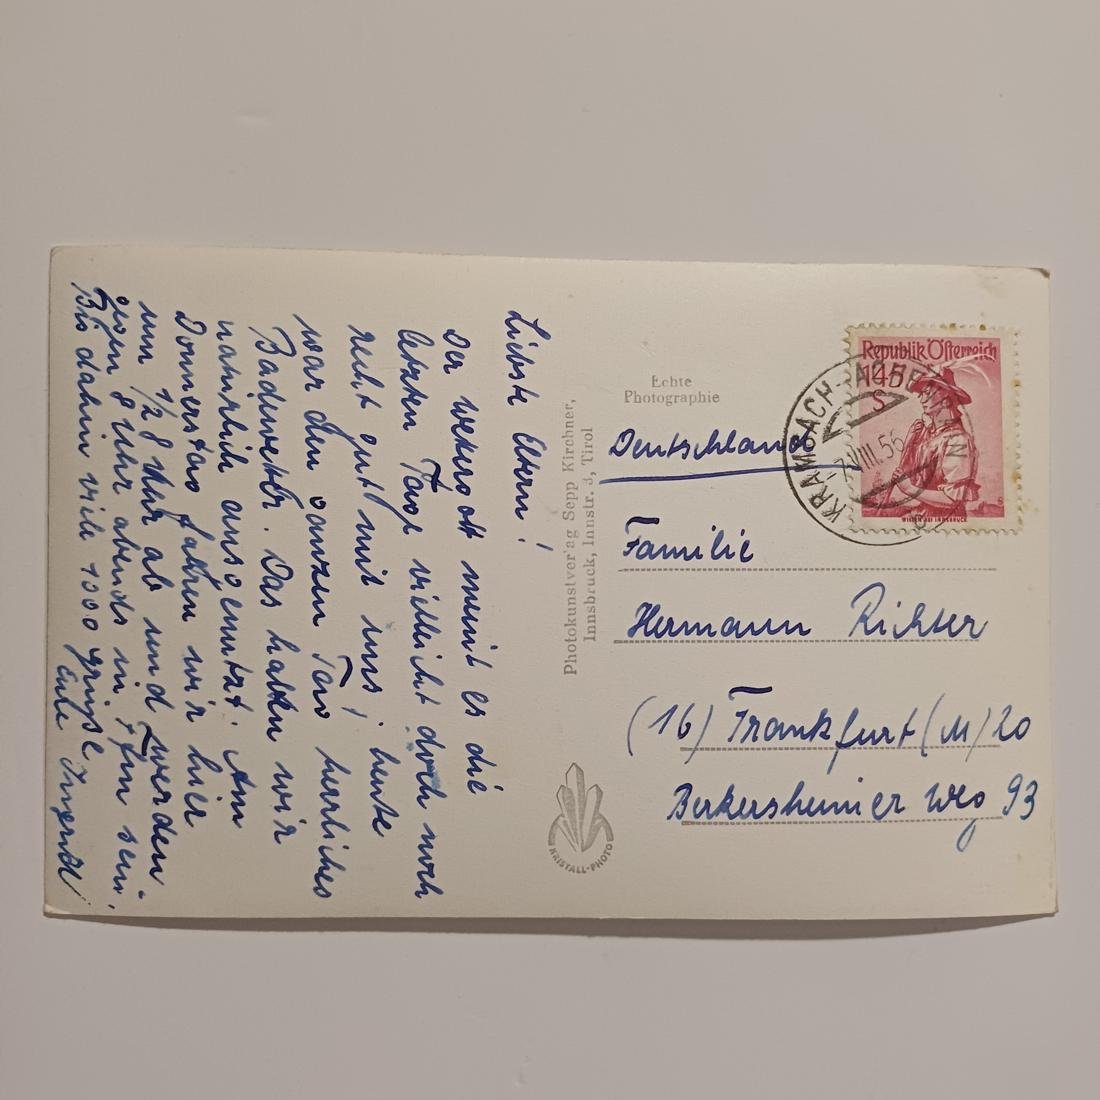 Liebste Eltern!
Der Wettergott meint es die
letzten Tage vielleicht doch noch
recht gut mit uns, heute
war den ganzen Tag herrliches
Badewetter. Das hatten wir
natürlich ausgenützt. Am
Donnerstag fahren wir hier
um 1/2 8 Uhr ab und werden
gegen 8 Uhr abends in Ffm sein.
Bis dahin viele 1000 Grüße
Eure
Photokunstver'ag Sepp Kirchner,
Innsbruck, Innstr. 3, Tirol
KRISTALL-PHOTO
Echte
Photographie
Republik Österreich
1·45
S
WILTEN BEI INNSBRUCK
KRAMSACH-ACHENRAIN
VIII.56
Deutschland
Familie
Hermann Richter
(16) Frankfurt (M) 20
Berkersheimer Weg 93